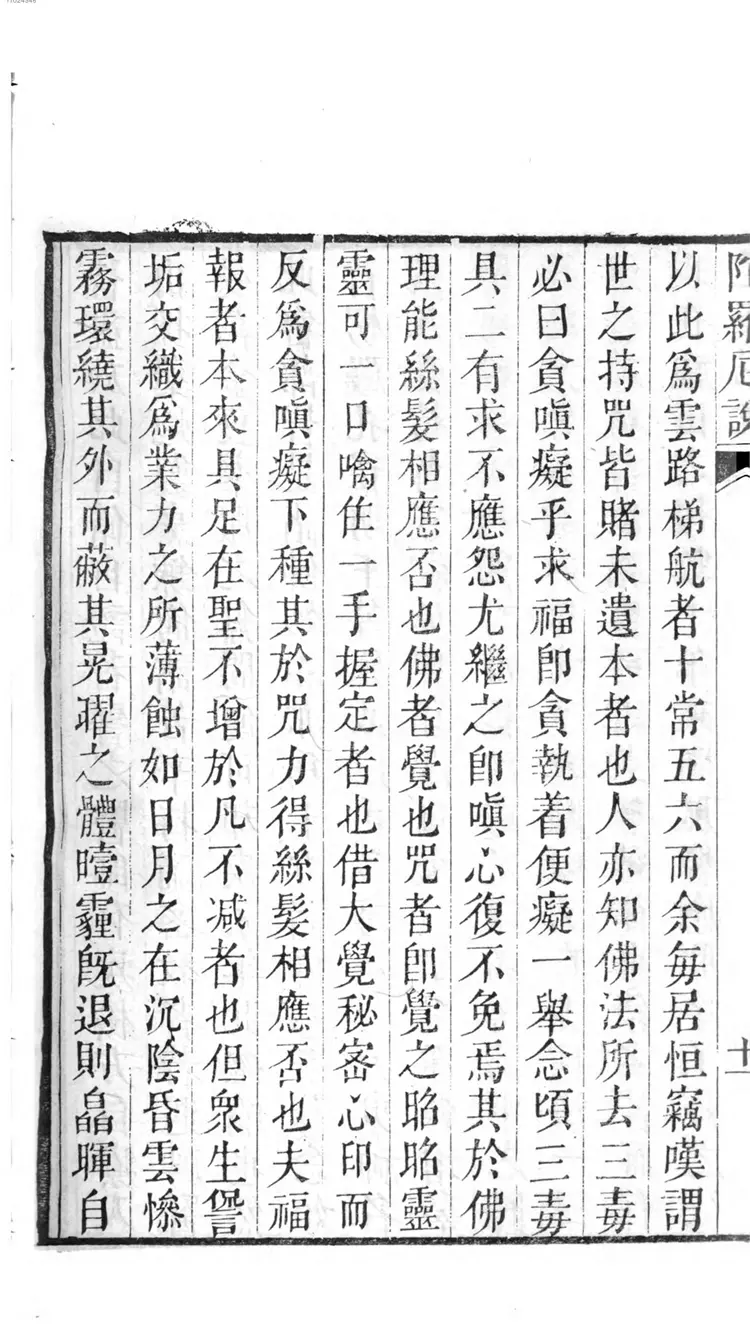 陀羅尼說
以此爲雲路梯航者十常五六而余每居恒竊嘆謂
世之持咒皆賭未遺本者也人亦知佛法所去三毒
必曰貪嗔癡乎求福卽貪執着便癡一舉念頃三毒
具二有求不應怨尤繼之卽嗔心復不免焉其於佛
理能絲髮相應否也佛者覺也咒者卽覺之昭昭靈
靈可一口噙住一手握定者也借大覺秘密心印而
反爲貪嗔癡下種其於咒力得絲髮相應否也夫福
報者本來具足在聖不增於凡不减者也但衆生
垢交織爲業力之所薄蝕如日月之在沉陰昏雲慘
霧環繞其外而蔽其晃矅之體曀霾旣退則皛暉自